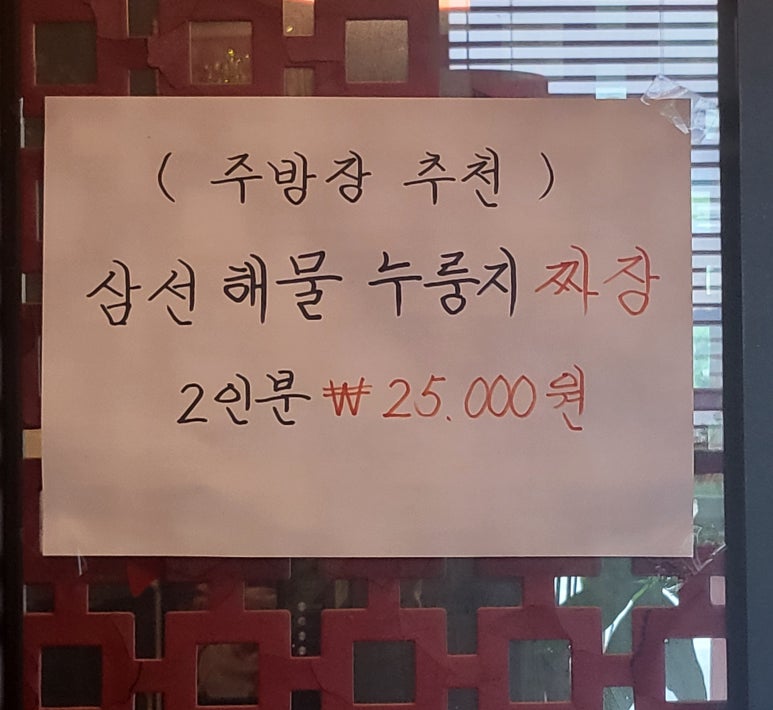 ( 주방장 추천 )
삼선 해물 누룽지 짜장
2인분 ₩ 25.000원